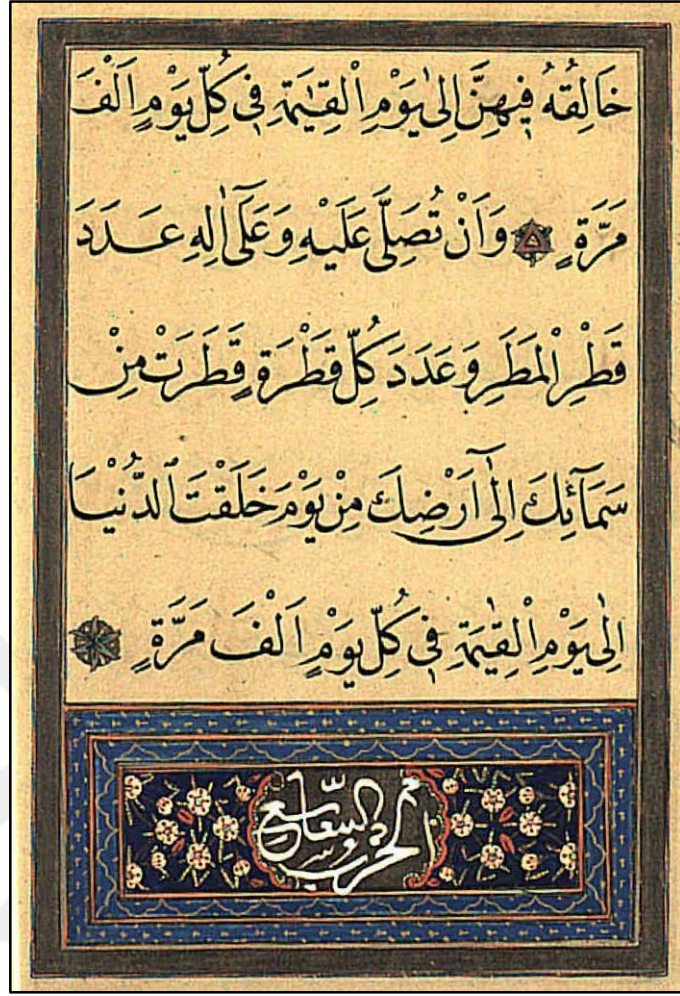 خَالِقُهُ فِيهِنَّ اِلٰى يَوْمِ اْلقِيٰمَةِ فِى كُلِّ يَوْمٍ اَلْفَ
مَرَّةٍ وَاَنْ تُصَلِّىَ عَلَيْهِ وَعَلٰٓى اٰلِهِ عَدَدَ
قَطْرِ اْلمَطَرِ وَعَدَدَ كُلِّ قَطْرَةٍ قَطَرَتْ مِنْ
سَمَآئِكَ اِلٰٓى اَرْضِكَ مِنْ يَوْمَ خَلَقْتَ الدُّنْيَا
اِلٰى يَوْمِ اْلقِيٰمَةِ فِى كُلِّ يَوْمٍ اَلْفَ مَرَّةٍ
الحزب السابع